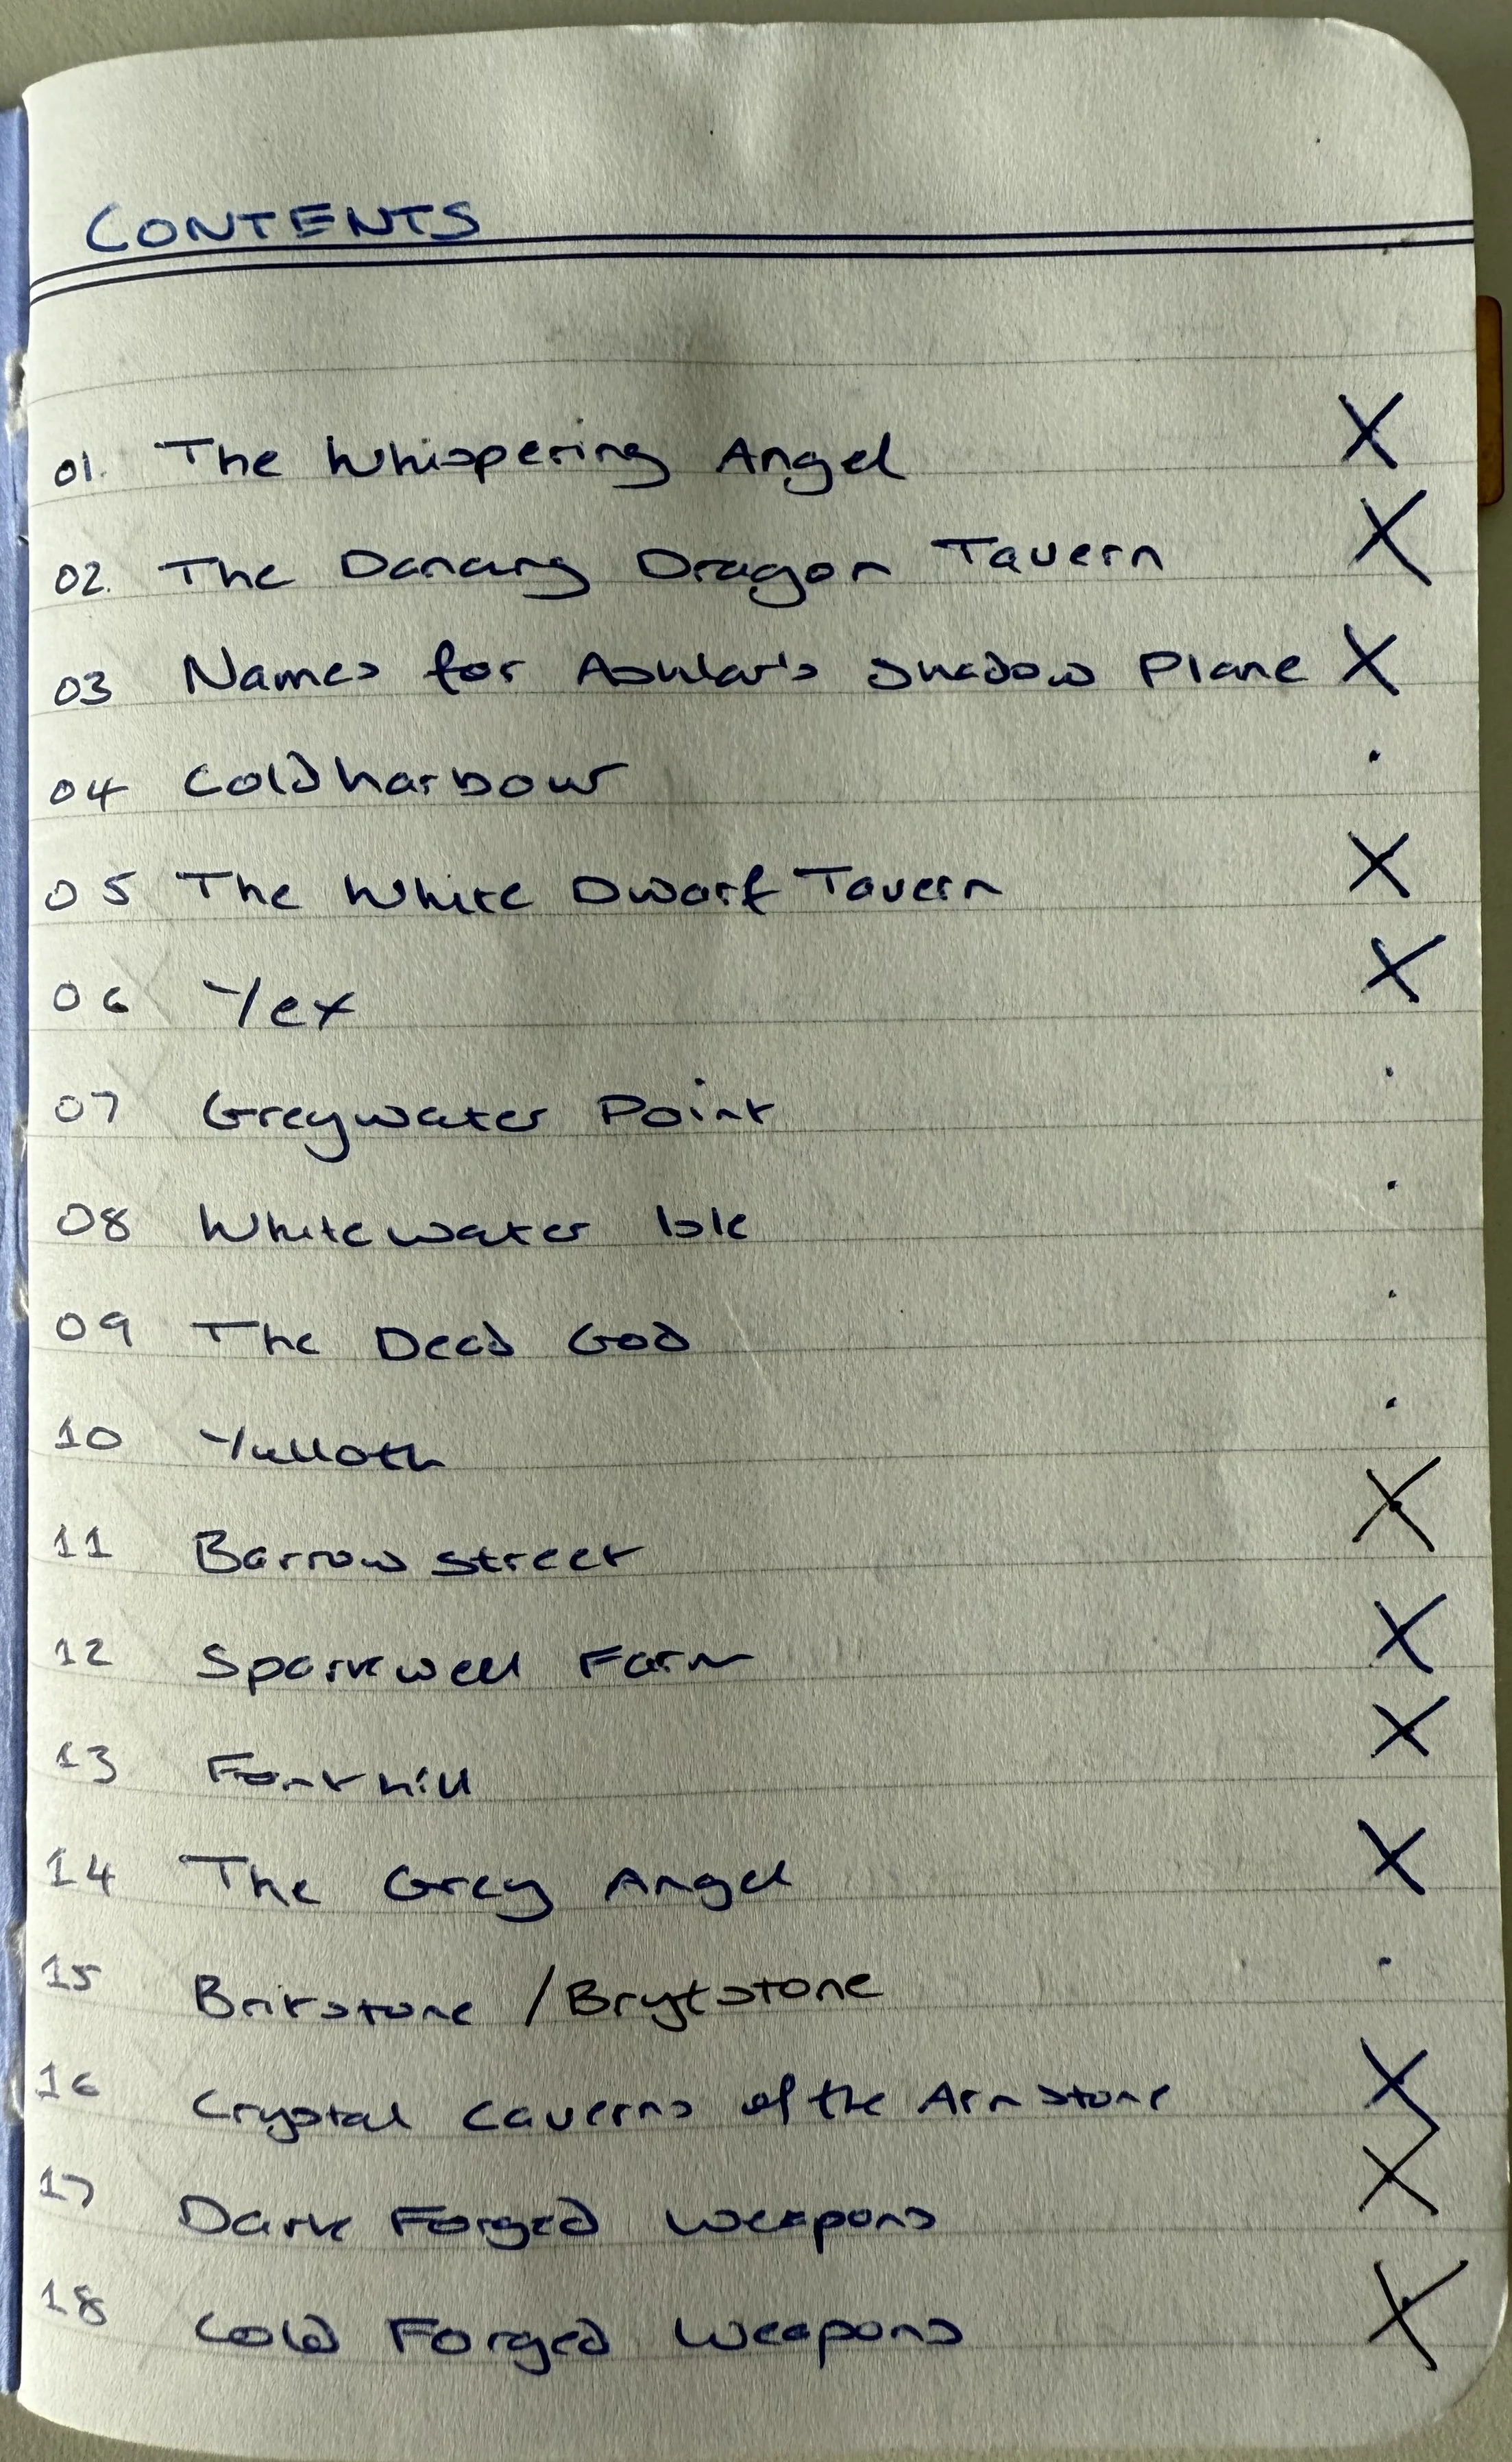 CONTENTS
01. The Whispering Angel X
02. The Dancing Dragon Tavern X
03 Names for Ashlar's Shadow Plane X
04 Coldharbour .
05 The White Dwarf Tavern X
06 Yex X
07 Greywater Point .
08 Whitewater Isle .
09 The Dead God .
10 Yulloth .
11 Barrow street X
12 Sparkwell Farm X
13 Fonthill X
14 The Grey Angel X
15 Britstone / Brytstone .
16 Crystal Caverns of the Arnstone X
17 Dark Forged Weapons X
18 Cold Forged Weapons X